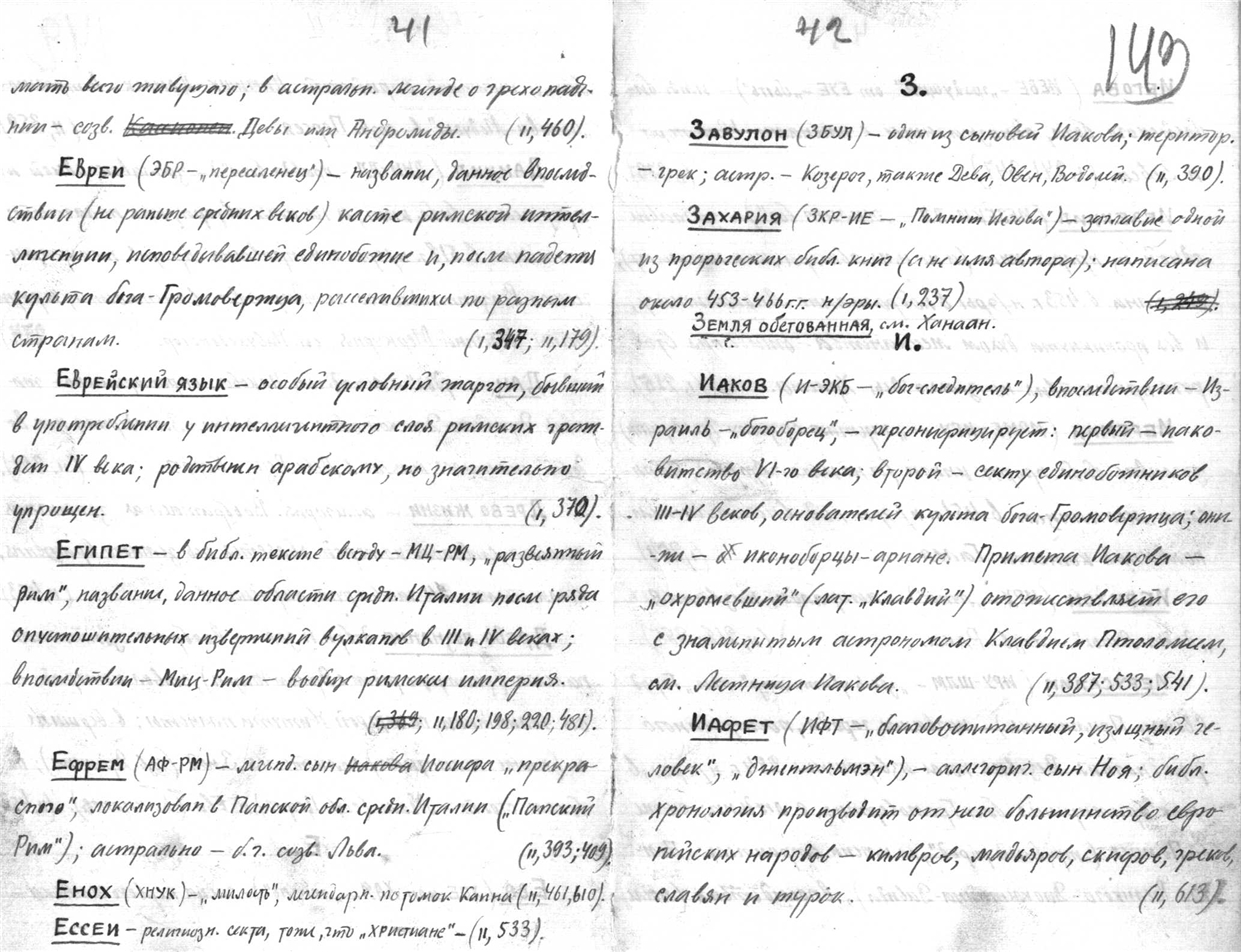 41
мать всего живущаго; в астральн. легенде о грехопаде-
нии – созв. Девы или Андромиды. (II, 460).
ЕВРЕИ (ЭБР – „переселенец") – название, данное впослед-
ствии (не раньше средних веков) касте римской интел-
лигенции, исповедывавшей единобожие и, после падения
культа бога-Громовержца, расселившихся по разным
странам. (I, 347; II, 179).
ЕВРЕЙСКИЙ ЯЗЫК – особый условный жаргон, бывший
в употреблении у интеллигентного слоя римских граж-
дан IV века; родственен арабскому, но значительно
упрощен. (I, 370).
ЕГИПЕТ – в библ. тексте всюду – МЦ-РМ, „развеянный
Рим", название, данное области средн. Италии после ряда
опустошительных извержений вулканов в III и IV веках;
впоследствии – Миц-Рим – вообще римская империя.
(I, 349; II, 180; 198; 220; 481).
ЕФРЕМ (АФ-РМ) – легенд. сын Иакова Иосифа „прекра-
сного", локализован в Папской обл. средн. Италии („Папский
Рим"); астрально – б.ч. созв. Льва. (II, 393; 409)
ЕНОХ (ХНУК) – „милость", легендарн. потомок Каина (II, 461, 610).
ЕССЕИ – религиозн. секта, тоже, что „христиане" – (II, 533).
42
143
З.
ЗАВУЛОН (ЗБУЛ) – один из сыновей Иакова; територ.
– грек; астр. – Козерог, также Дева, Овен, Водолей. (II, 390).
ЗАХАРИЯ (ЗКР-ИЕ – „Помнит Иегова") – заглавие одной
из пророческих библ. книг (а не имя автора); написана
около 453-466 г.г. н/эры. (I, 237)
ЗЕМЛЯ ОБЕТОВАННАЯ, см. Ханаан.
И.
ИАКОВ (И-ЭКБ – „бог-следитель"), впоследствии – Из-
раиль – „богоборец", – персонифицирует: первый – иако-
витство VI-го века; второй – секту единобожников
III-IV веков, основателей культа бога-Громовержца; они
-же – иконоборцы-ариане. Примета Иакова –
„охромевший" (лат. „Клавдий") отожествляет его
с знаменитым астрономом Клавдием Птоломеем,
см. Лестница Иакова. (II, 387; 533; 541).
ИАФЕТ (ИФТ – „благовоспитанный, изящный че-
ловек", „джентльмэн"), – аллегорич. сын Ноя; библ.
хронология производит от него большинство евро-
пейских народов – кимвров, мадьяров, скифов, греков,
славян и турок. (II, 613).